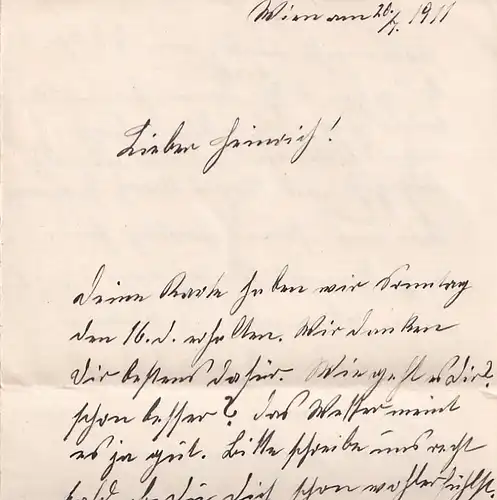 Wien am 20./7. 1911
Lieber Heinrich!
Deine Karte haben wir Sonntag
den 16. d. erhalten. Wir danken
Dir bestens dafür. Wie geht es Dir?
schon besser? das Wetter meint
es ja gut. Bitte schreibe uns recht
bald, ob Du Dich schon wohler fühlst.